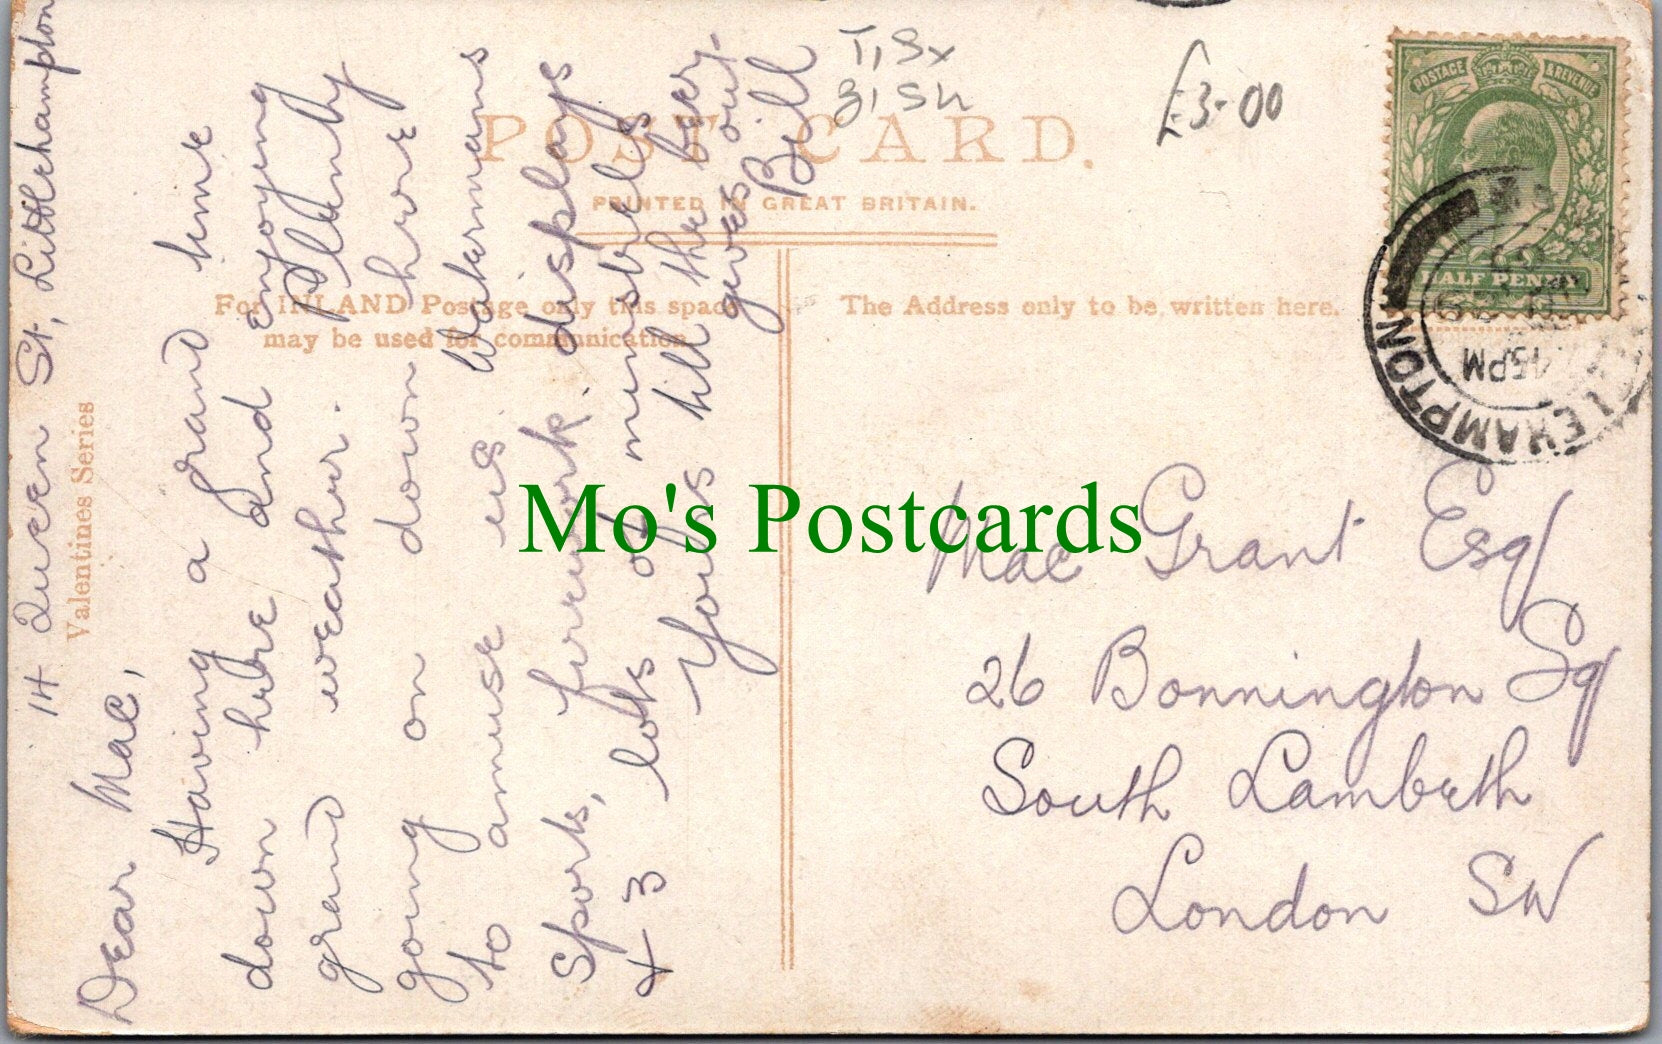 POST CARD.
PRINTED IN GREAT BRITAIN.
For INLAND Postage only this space
may be used for communication.
The Address only to be written here.
Valentines Series
£3-00
POSTAGE & REVENUE
HALF PENNY
LITTLEHAMPTON
45PM
14 Queen St, Littlehampton
Dear Mac,
Having a grand time
down here and enjoying
grand weather. Plenty
going on down here
to amuse us Watermans
Sports, firework displays
& 3 lots of minstrels
Yours till the beer
gives out.
Bill
Mac Grant Esq
26 Bonnington Sq
South Lambeth
London SW
Mo's Postcards